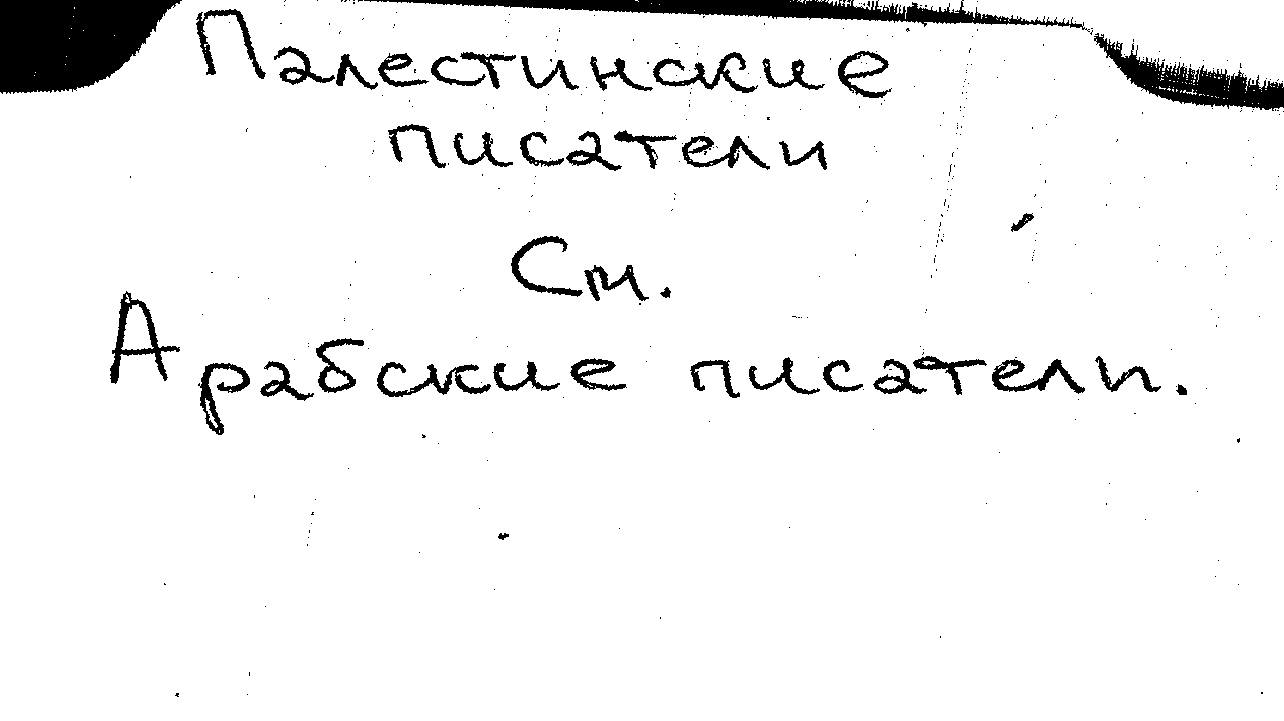 Палестинские
писатели
См.
Арабские писатели.